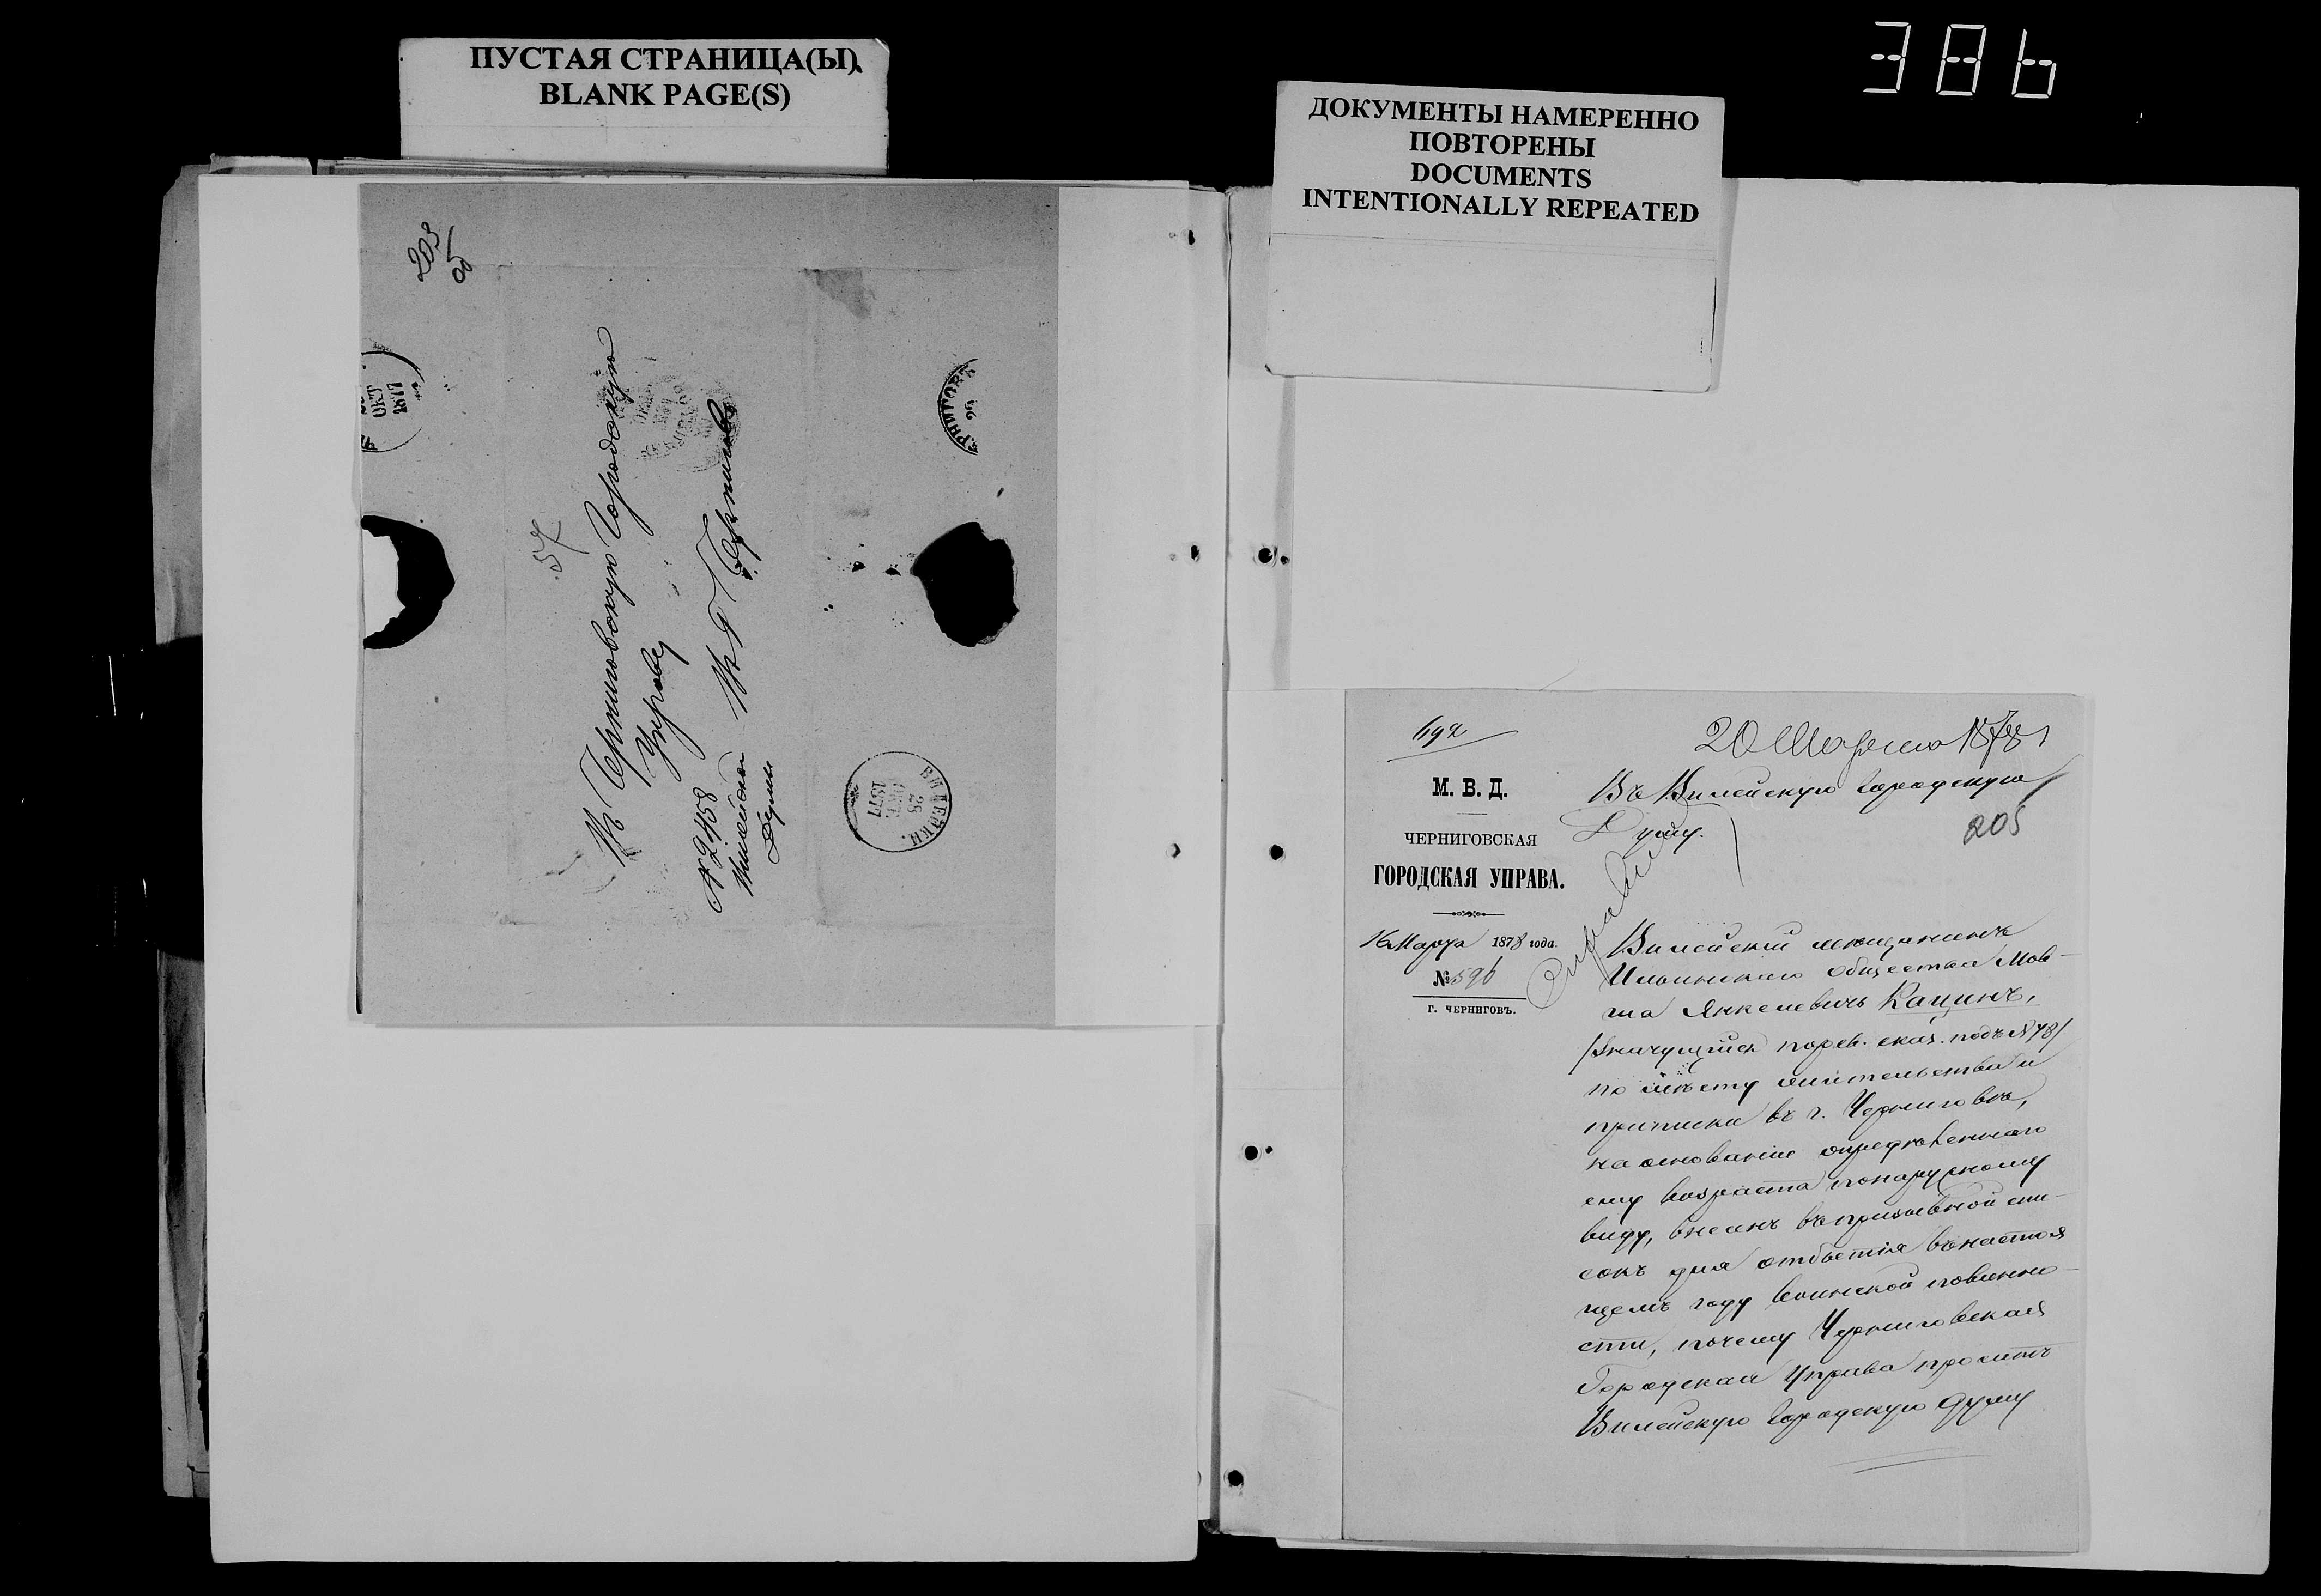 ПУСТАЯ СТРАНИЦА(Ы)
BLANK PAGE(S)
ДОКУМЕНТЫ НАМЕРЕННО
ПОВТОРЕНЫ
DOCUMENTS
INTENTIONALLY REPEATED
203
об
ОКТ
1877
57
Въ Черниговскую Городскую
Управу
№ 2458
Вилейской
Думы
Въ г. Черниговъ
ВИЛЕЙКИ
28
ОКТ
1877
692
20 Марта 1878
М. В. Д.
ЧЕРНИГОВСКАЯ
ГОРОДСКАЯ УПРАВА.
16 Марта 1878 года.
№ 596
Г. ЧЕРНИГОВЪ.
Въ Вилейскую Городскую
Думу.
205
Вилейскій мѣщанинъ
Ильинскаго общества Мов-
ша Янкелевичъ Кацинъ,
/значущійся по рев. сказ. подъ № 48/
по мѣсту жительства и
приписки въ г. Черниговѣ,
на основаніи опредѣленнаго
ему возраста по наружному
виду, внесенъ въ призывной спи-
сокъ для отбытія въ настоя
щемъ году воинской повинно-
сти, почему Черниговская
Городская Управа проситъ
Вилейскую Городскую Думу